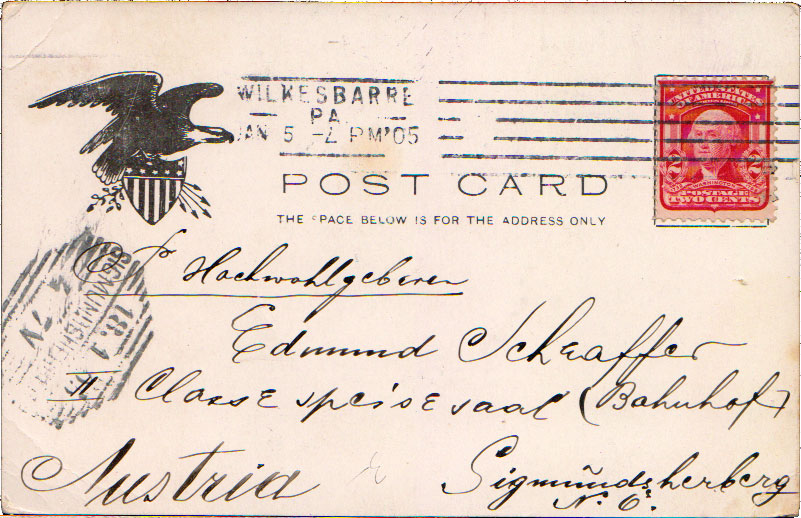 WILKESBARRE
PA.
JAN 5 -7 PM '05
UNITED STATES
OF AMERICA
2 2
WASHINGTON
POSTAGE
TWO CENTS
POST CARD
THE SPACE BELOW IS FOR THE ADDRESS ONLY
Hochwohlgeboren
Edmund Scheaffer
II Classe speise saal (Bahnhof)
Austria Sigmundsherberg
N. Ö.
18.1